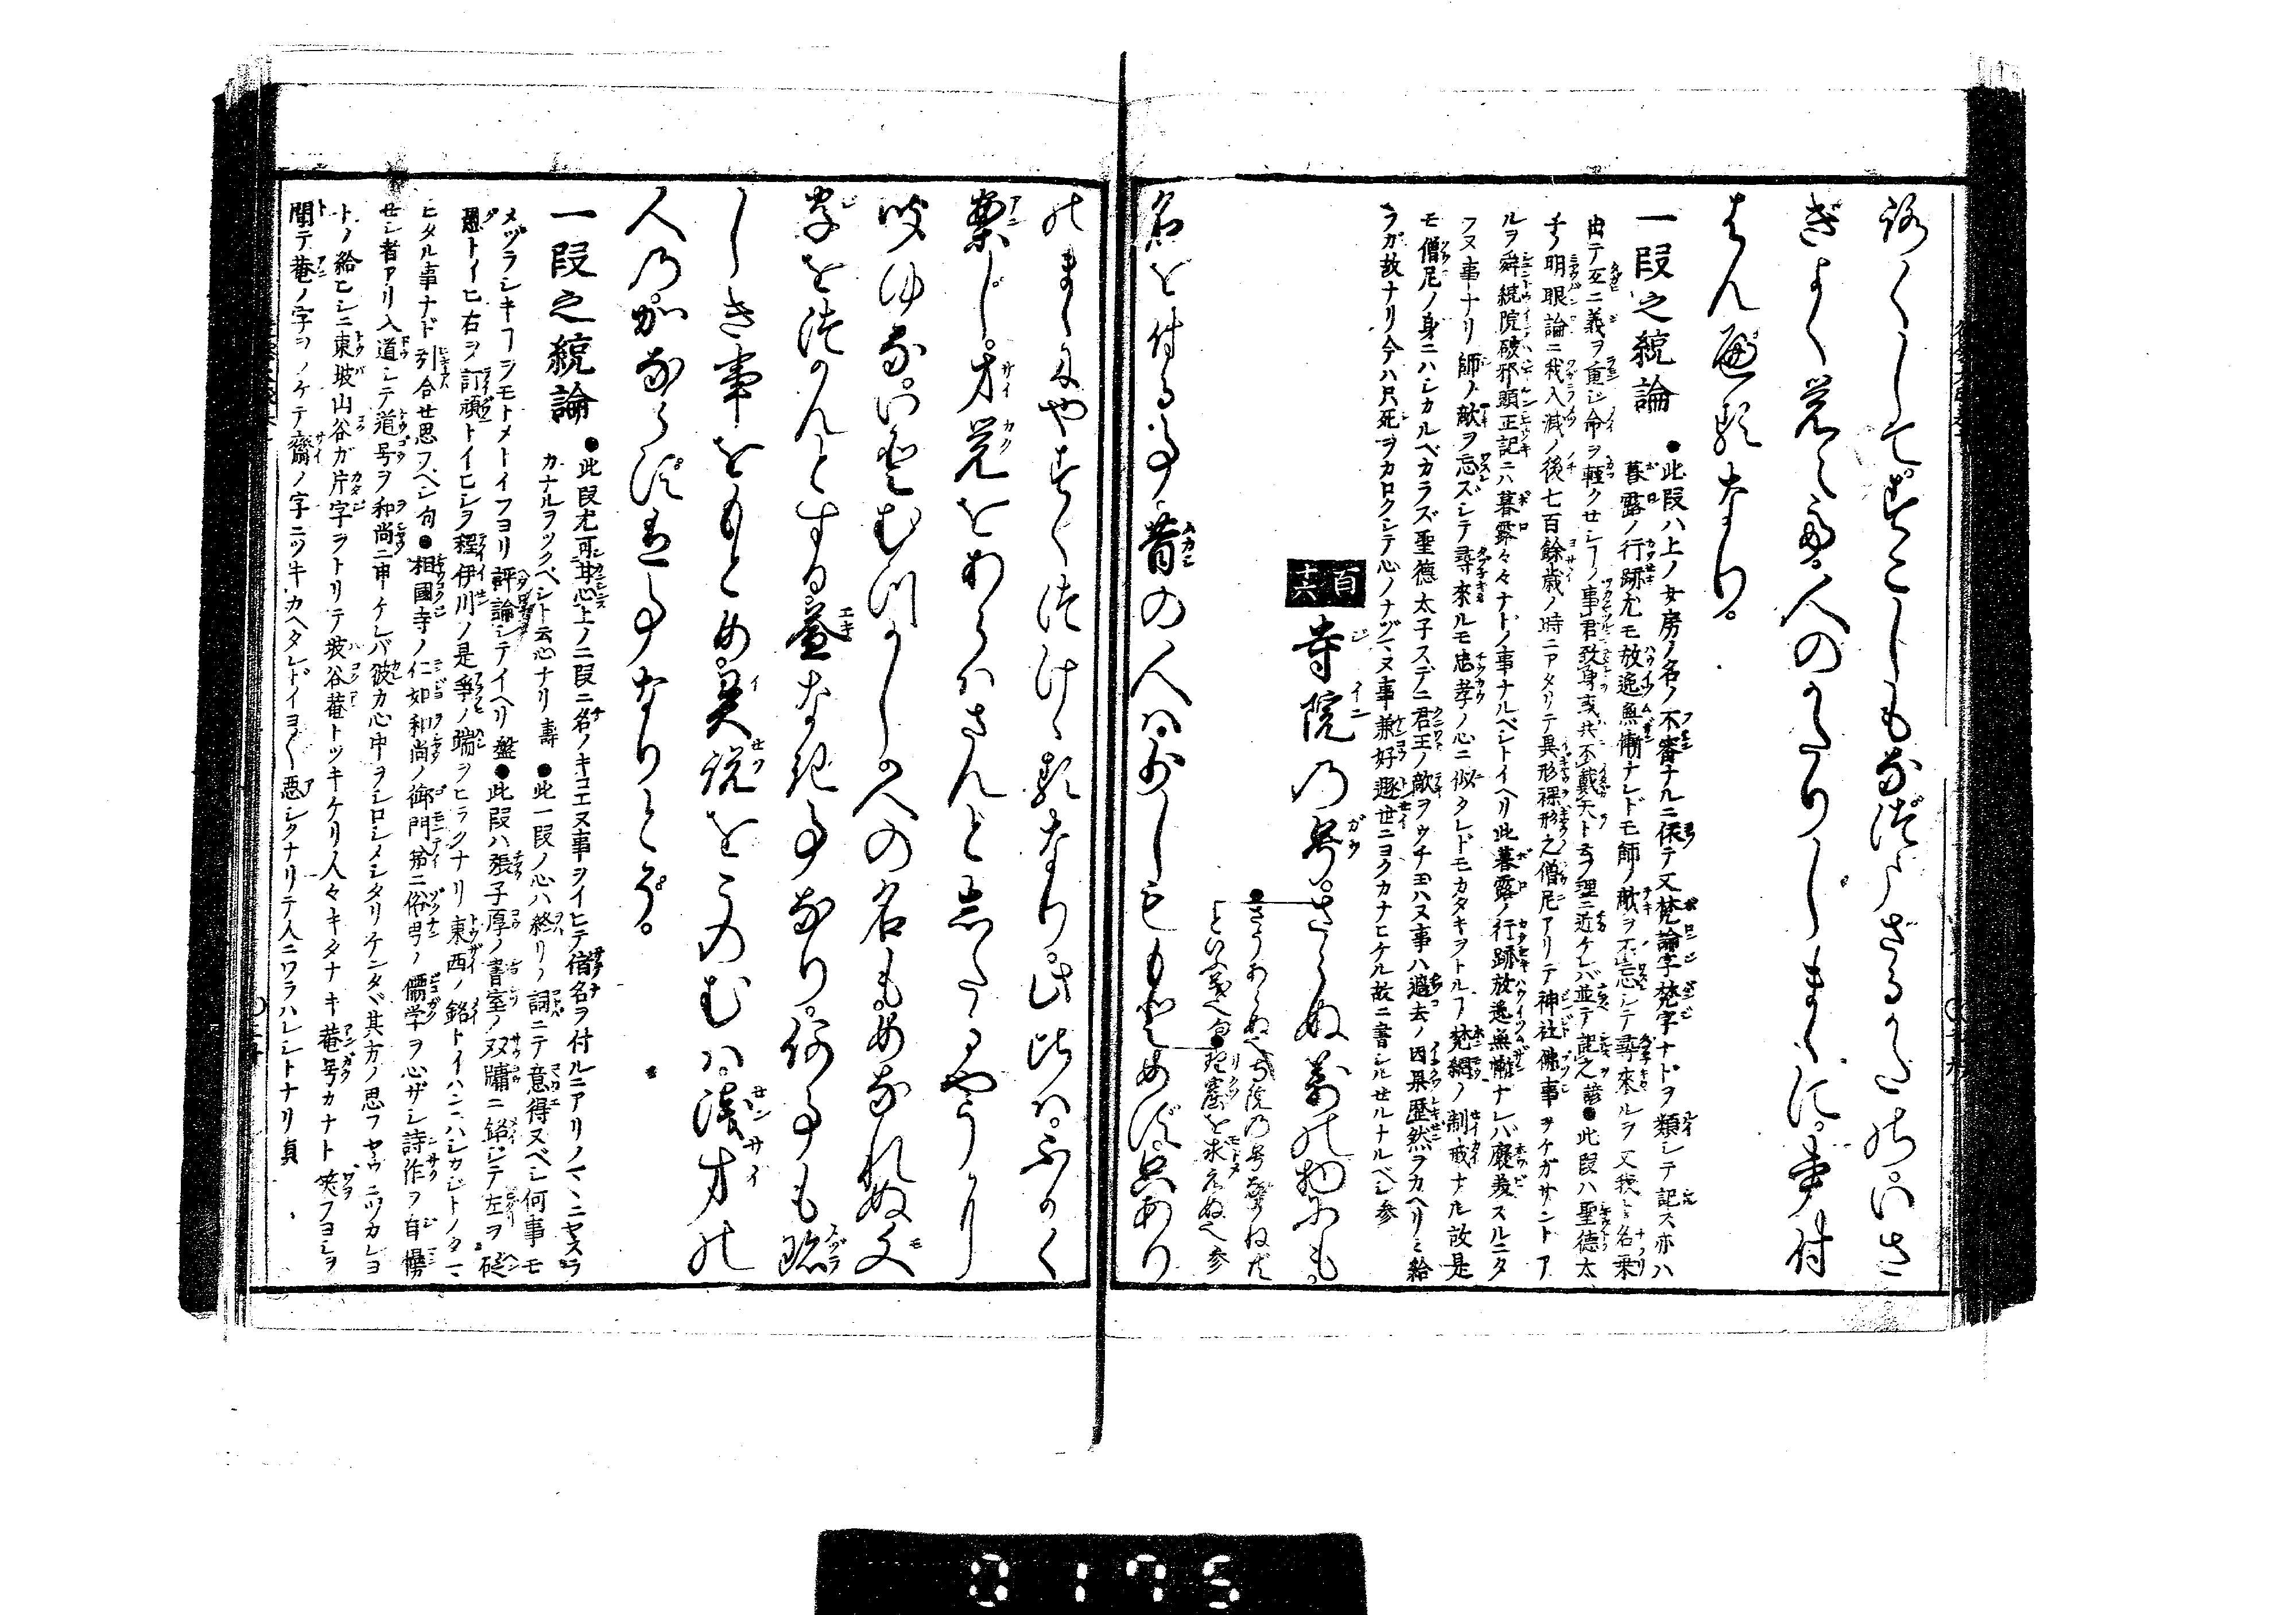 ろくして。すこしもなづまざるかたのいさ
ぎよく覚えて。人のかたりしまゝに。書付
はんべるなり。
一段之統論
●此段ハ上ノ女房ノ名ノ不審ナルニ依テ又梵論字梵字ナドヲ類シテ記ス亦ハ
暮露ノ行跡尤モ放逸無慚ナレドモ師ノ敵ヲ不忘シテ尋來ルヲ又我ト名乗
出テ互ニ義ヲ重ジ命ヲ軽クセシヿノ事君致身
子ノ明眼論ニ我入滅ノ後七百餘歳ノ時ニアタリテ異形裸形之僧尼アリテ神社佛事ヲケガサントア
ルヲ舜統院破邪顕正記ニハ暮露々々ナドノ事ナルベシトイヘリ此暮露ノ行跡放逸無慚ナレバ
フヌ事ナリ師ノ敵ヲ忘ズシテ尋來ルモ忠孝ノ心ニ似タレドモカタキヲトルヿ梵網ノ制戒ナル故是
モ僧尼ノ身ニハシカルベカラズ聖德太子スデニ君王ノ敵ヲウチ玉ハヌ事ハ過去ノ因果歴然ヲカヘリミ給
フガ故ナリ今ハ只死ヲカロクシテ心ノナヅマヌ事兼好遯世ニヨクカナヒケル故ニ書シルセルナルベシ參
百十六
寺院の号。さらぬ萬の物にも
●さらぬ
名を付る事。昔の人は少しももとめず。只あり
のまゝにやすくつけゝるなり。此比は。ふかく
案じ。才覚をあらはさんとしたるやうに
聞ゆる。いとむつかし。人の名も。めなれぬ文
字をつかんとする。益なき事なり。何事も珍
しき事をもとめ。異説をこのむは。浅才の
人の必ある事なりとぞ。
一段之統論
●此段尤可甘心上ノ二段ニ名ノキコエヌ事ヲイヒテ宿名ヲ付ルニアリノマヽニヤスラ
カナルヲツクベシト云心ナリ壽●此一段ノ心ハ終リノ詞ニテ意得ヌベシ何事モ
メヅラシキヿヲモトメトイフヨリ評論シテイヘリ盤●此段ハ張子厚ノ書室ノ双牖ニ銘ジテ左ヲ砭
愚トイヒ右ヲ訂頑トイヒシヲ程伊川ノ是爭ノ端ヲヒラクナリ東西ノ銘トイハンニハシカジトノタマ
ヒタル事ナド引合せ思フベシ句●相國寺ノ仁如和尚ノ御門弟ニ俗男ノ儒学ヲ心ザシ詩作ヲ自慢
せシ者アリ入道シテ道号ヲ和尚ニ申ケレバ彼カ心中ヲシロシメシタリケンタヾ其方ノ思フヤウニツカレヨ
トノ給ヒシニ東坡山谷ガ片字ヲトリテ坡谷菴トツキケリ人々キタナキ菴号カナト笑フヨシヲ
聞テ菴ノ字ヲノケテ齋ノ字ニツキカヘタレドイヨ〱悪シクナリテ人ニワラハレシトナリ貞
0175